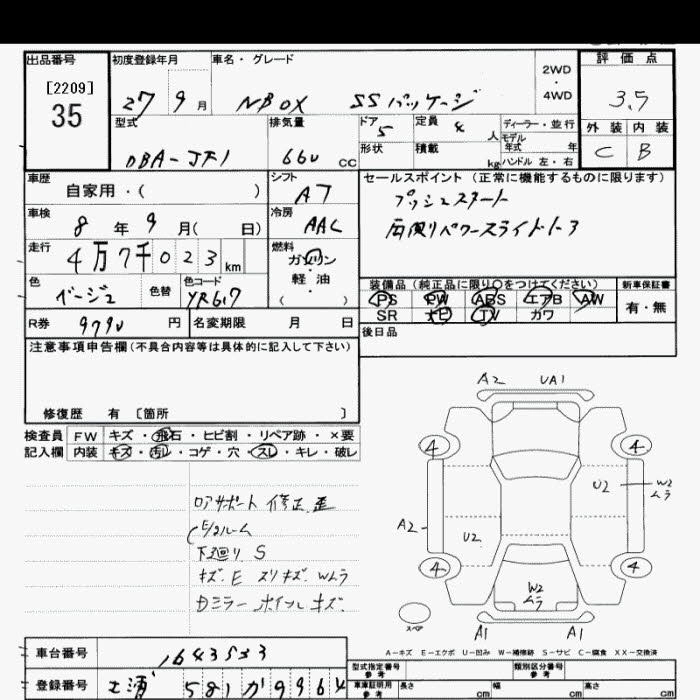 出品番号
[2209]
35
初度登録年月
27 9 月
車名・グレード
NBOX SSパッケージ
2WD
・
4WD
評価点
3.5
外装 内装
C B
型式
DBA-JF1
排気量
660 cc
ドア
5
定員
4 人
ディーラー・並行
モデル
年式 年
形状
積載
kg
ハンドル 左・右
車歴
自家用・( )
シフト
AT
セールスポイント (正常に機能するものに限ります)
プッシュスタート
両側パワースライドドア
車検
8 年 9 月( 日)
冷房
AAC
走行
4万7千023 km
燃料
ガソリン
・
軽油
( )
色
ベージュ
色替
色コード
YR617
装備品 (純正品に限り○をつけてください)
PS PW ABS エアB AW
SR ナビ TV カワ
新車保証書
有・無
R券
9790 円
名変期限 月 日
後日品
注意事項申告欄(不具合内容等は具体的に記入して下さい)
修復歴 有 〔箇所 〕
検査員
記入欄
FW キズ・飛石・ヒビ割・リペア跡・×要
内装 キズ・汚れ・コゲ・穴・スレ・キレ・破レ
コアサポート 修正 歪
下廻り S
キズ.E スリキズ. Wムラ
Dミラー ホイルキズ.
A2 UA1
4 4
U2
W2
ムラ
A2
U2
4 4
W2
ムラ
スペア
A1 A1
A-キズ E-エクボ U-凹み W-補修跡 S-サビ C-腐食 XX-交換済
車台番号
1643533
登録番号
土浦 581 か 9964
型式指定番号
参考
類別区分番号
参考
車庫証明用
参考
長さ cm
幅 cm
高さ cm